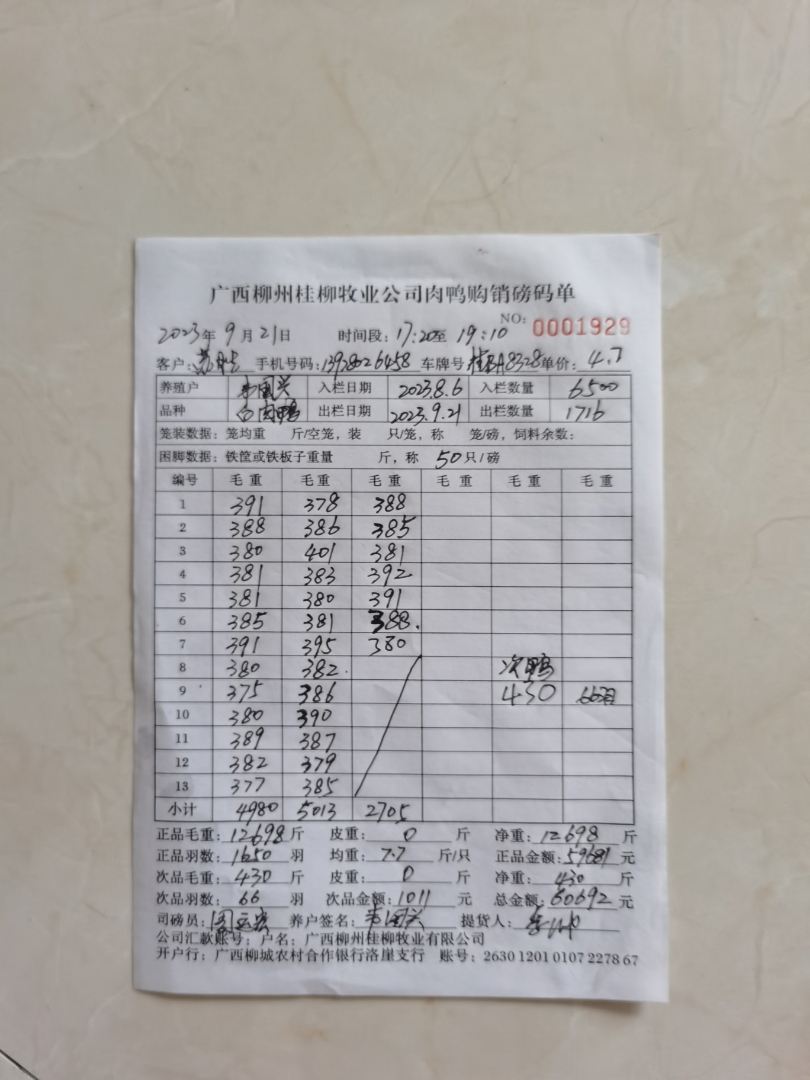 广西柳州桂柳牧业公司肉鸭购销磅码单
NO: 0001929
2023年 9月21日 时间段: 17:20至 19:10
客户: 手机号码: 车牌号: 单价: 4.7
养殖户 韦国兴 入栏日期 2023.8.6 入栏数量 6500
品种 白肉鸭 出栏日期 2023.9.21 出栏数量 1716
笼装数据: 笼均重 斤/空笼, 装 只/笼, 称 笼/磅, 饲料余数:
困脚数据: 铁筐或铁板子重量 斤, 称 50只/磅
编号 毛重 毛重 毛重 毛重 毛重 毛重
1 391 378 388
2 388 386 385
3 380 401 381
4 381 383 392
5 381 380 391
6 385 381 388.
7 391 395 380
8 380 382. 次鸭
9 375 386 430 66羽
10 380 390
11 389 387
12 382 379
13 377 385
小计 4980 5013 2705
正品毛重: 12698斤 皮重: 0 斤 净重: 12698 斤
正品羽数: 1650 羽 均重: 7.7 斤/只 正品金额: 59681 元
次品毛重: 430 斤 皮重: 0 斤 净重: 430 斤
次品羽数: 66 羽 次品金额: 1011 元 总金额: 60692 元
司磅员: 养户签名: 韦国兴 提货人:
公司汇款账号: 户名: 广西柳州桂柳牧业有限公司
开户行: 广西柳城农村合作银行洛崖支行 账号: 2630 1201 0107 2278 67